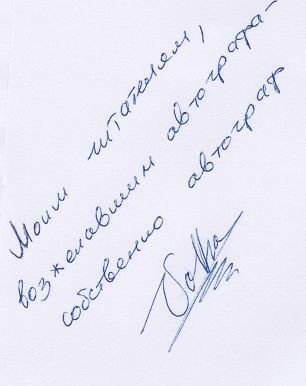 Моим читателям,
возжелавшим автографа -
собственно автограф